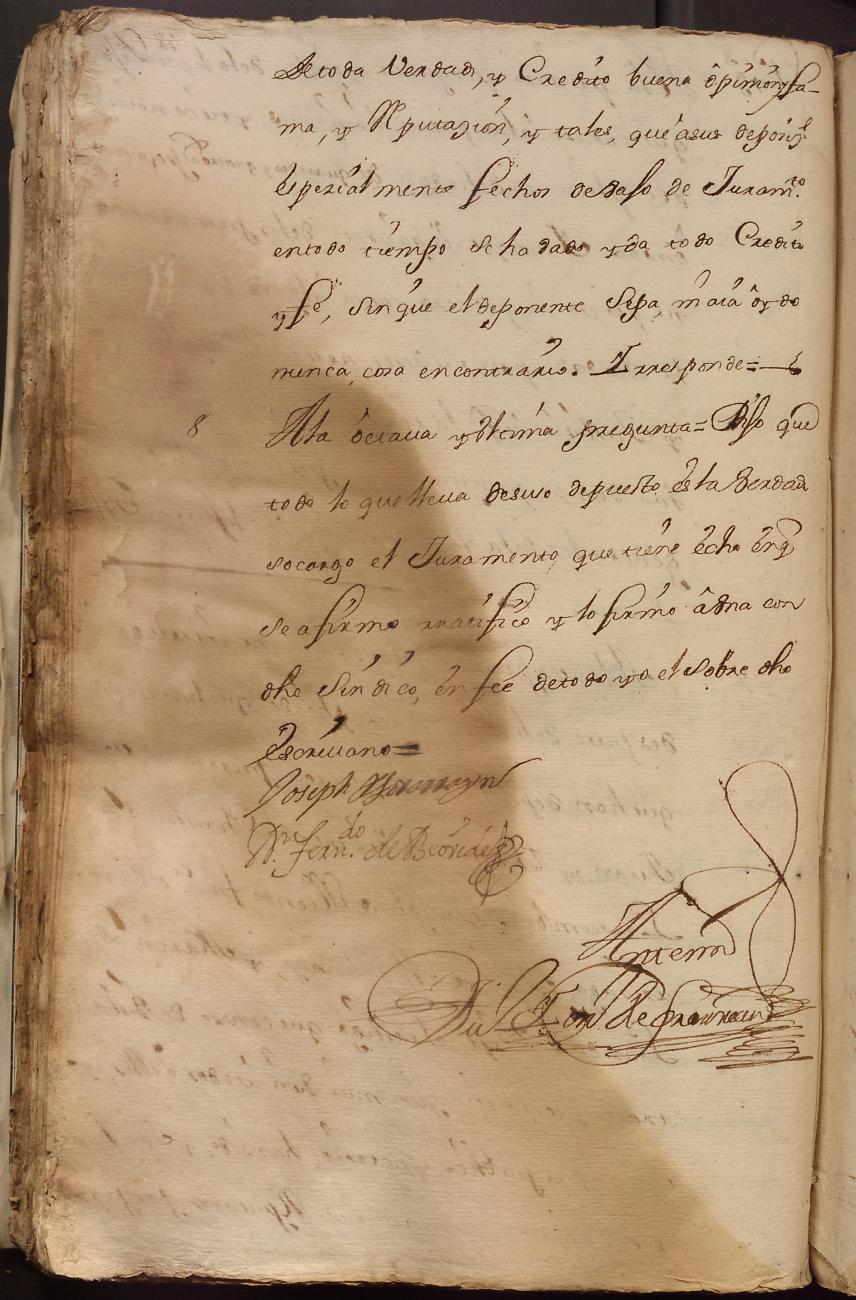 de toda Verdad, y Credito buena ôpimon y fa-
ma, y Rputazion, y tales, que a sus deposiz.s
espezial mente fechos debaso de Juram.to
en todo tiempo se ha dado y da todo Credito
y fe, sin que el deponente sepa, ni aia ôydo
nunca, cosa encontrario. Y rresponde=
8 A la octava y vltima pregunta= Diso que
todo lo que lleva desuso depuesto es la Verdad
so cargo el Juramento que tiene echo en q
se afirmo rratifico y lo firmo â una con
dho Sindico, en fee de todo yo el sobre dho
escrivano=
Joseph
Dn. fern.do de
Antemi